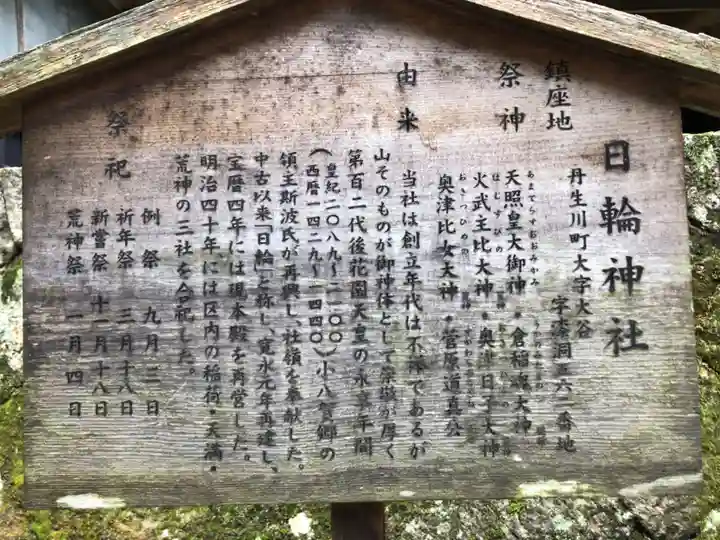 日輪神社
鎮座地
丹生川町大字大谷
字漆洞五六二番地
祭神
あまてらすおおみかみ
天照皇大御神・倉稲魂大神
火武主比大神・奥津日子大神
奥津比女大神・菅原道真公
由来
当社は創立年代は不詳であるが
山そのものが御神体として崇敬が厚く
第百二代後花園天皇の永享年間
(皇紀二〇八九〜二一〇〇)
(西暦一四二九〜一四四〇)小八賀郷の
領主斯波氏が再興し、社領を奉献した。
中古以来「日輪」と称し、寛永元年再建し、
宝暦四年には現本殿を再営した。
明治四十年には区内の稲荷・天満・
荒神の三社を合祀した。
祭祀
例祭 九月二日
祈年祭 三月十八日
新嘗祭 十一月十八日
荒神祭 一月四日